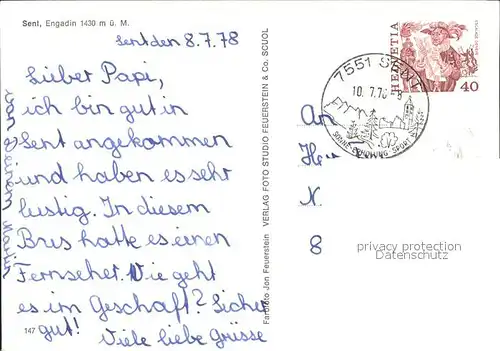 Sent, Engadin 1430 m ü. M.
Sent den 8.7.78
Lieber Papi,
ich bin gut in
Sent angekommen
und haben es sehr
lustig. In diesem
Brus hatte es einen
Fernseher. Wie geht
es im Geschäft? Sicher
gut!
Viele liebe Grüsse
von deinem Martin
147
Farbfoto Jon Feuerstein VERLAG FOTO STUDIO FEUERSTEIN & Co. SCUOL
HELVETIA
40
7551 SENT
10. 7. 78 - 8
SPORT
An
Herr
N.
8
privacy protection
Datenschutz